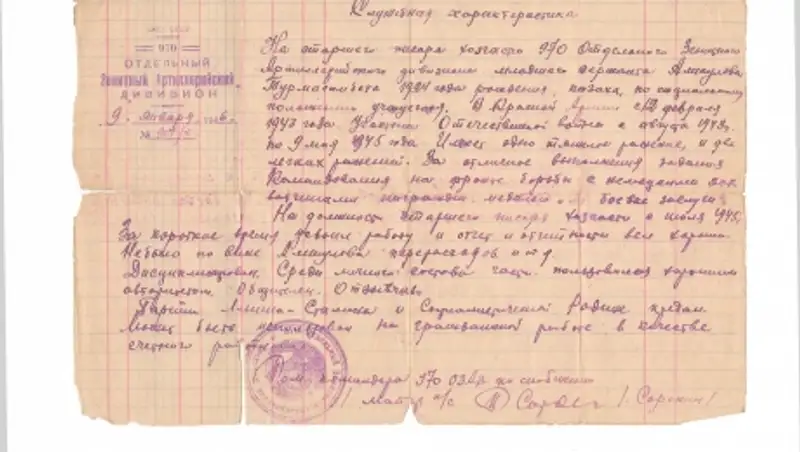 Служебная характеристика
970
ОТДЕЛЬНЫЙ
Зенитный Артиллерийский
ДИВИЗИОН
9 января 1946 г.
№
На старшего писаря хозчасти 970 Отдельного Зенитного
Артиллерийского дивизиона младшего сержанта
Турмагамбета 1924 года рождения, казаха, по социальному
положению учащегося. В Красной Армии с февраля
1943 года. Участник Отечественной войны с августа 1943г.
по 9 мая 1945 года. Имеет одно тяжелое ранение, и два
легких ранения. За отличное выполнения задания
Командования на фронте борьбы с немецкими
награжден медалью боевые заслуги
На должности старшего писаря хозчасти с июля 1945г.
За короткое время освоил работу и отчет и отчетность вел хорошо.
Небыло по вине перерасходов и т.д.
Дисциплинирован. Среди личного состава части пользовался хорошим
авторитетом. Общителен. Отзывчив.
Партии Ленина-Сталина и Социалистической Родине предан.
Может быть использован на гражданской работе в качестве
счетного
Пом. командира 970 ОЗАД по снабжению
/ Сорокин /